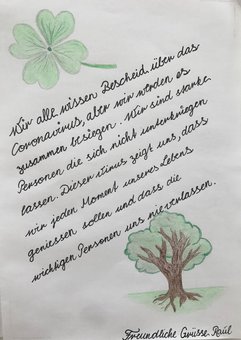 Wir alle wissen Bescheid über das
Coronavirus, aber wir werden es
zusammen besiegen. Wir sind starke
Personen die sich nicht unterkriegen
lassen. Dieser Virus zeigt uns, dass
wir jeden Moment unseres Lebens
geniessen sollen und dass die
wichtigen Personen uns nie verlassen.
Freundliche Grüsse Raúl